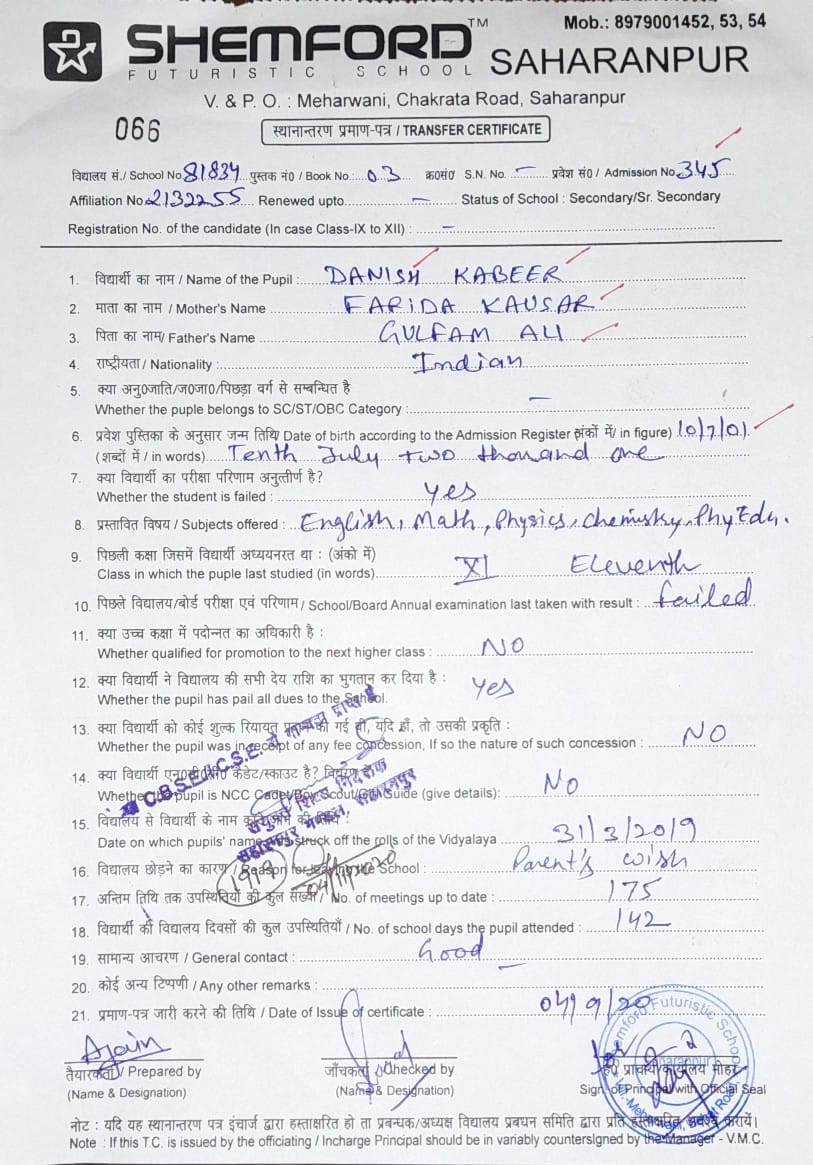 Mob.: 8979001452, 53, 54
SHEMFORD™
FUTURISTIC SCHOOL SAHARANPUR
V. & P. O. : Meharwani, Chakrata Road, Saharanpur
066
स्थानान्तरण प्रमाण-पत्र / TRANSFER CERTIFICATE
विद्यालय सं./ School No 81834 पुस्तक नं0 / Book No.: 03 क्र0सं0 S.N. No. – प्रवेश सं0 / Admission No 345
Affiliation No 2132255 Renewed upto – Status of School : Secondary/Sr. Secondary
Registration No. of the candidate (In case Class-IX to XII) : –
1. विद्यार्थी का नाम / Name of the Pupil : DANISH KABEER
2. माता का नाम / Mother's Name FARIDA KAUSAR
3. पिता का नाम/ Father's Name GULFAM ALI
4. राष्ट्रीयता / Nationality : Indian
5. क्या अनु0जाति/ज0जा0/पिछड़ा वर्ग से सम्बन्धित है
Whether the puple belongs to SC/ST/OBC Category : –
6. प्रवेश पुस्तिका के अनुसार जन्म तिथि/ Date of birth according to the Admission Register (अंकों में/ in figure) 10/7/01
(शब्दों में / in words) Tenth July two thousand one
7. क्या विद्यार्थी का परीक्षा परिणाम अनुत्तीर्ण है?
Whether the student is failed : Yes
8. प्रस्तावित विषय / Subjects offered : English, Math, Physics, Chemistry, Phy Edu.
9. पिछली कक्षा जिसमें विद्यार्थी अध्ययनरत था : (अंको में)
Class in which the puple last studied (in words) XI Eleventh
10. पिछले विद्यालय/बोर्ड परीक्षा एवं परिणाम / School/Board Annual examination last taken with result : failed
11. क्या उच्च कक्षा में पदोन्नत का अधिकारी है :
Whether qualified for promotion to the next higher class : NO
12. क्या विद्यार्थी ने विद्यालय की सभी देय राशि का भुगतान कर दिया है :
Whether the pupil has pail all dues to the School. Yes
13. क्या विद्यार्थी को कोई शुल्क रियायत प्रदान की गई थी, यदि हाँ, तो उसकी प्रकृति :
Whether the pupil was in receipt of any fee concession, If so the nature of such concession : NO
14. क्या विद्यार्थी एन0सी0सी0 कैडेट/स्काउट है? विवरण दें
Whether the pupil is NCC Cadet/Boy Scout/Girl Guide (give details): NO
C.B.S.E./I.C.S.E. से मान्यता प्राप्त है
संयुक्त शिक्षा निदेशक
सहारनपुर मण्डल, सहारनपुर
15. विद्यालय से विद्यार्थी के नाम काटे जाने की तिथि :
Date on which pupils' name was struck off the rolls of the Vidyalaya 31/3/2019
16. विद्यालय छोड़ने का कारण / Reason for leaving the School : Parent's wish
17. अन्तिम तिथि तक उपस्थितियों की कुल संख्या / No. of meetings up to date : 175
18. विद्यार्थी की विद्यालय दिवसों की कुल उपस्थितियाँ / No. of school days the pupil attended : 142
19. सामान्य आचरण / General contact : Good
20. कोई अन्य टिप्पणी / Any other remarks : –
21. प्रमाण-पत्र जारी करने की तिथि / Date of Issue of certificate : 04/9/20
Shemford Futuristic School
Saharanpur
तैयारकर्ता / Prepared by
(Name & Designation)
जाँचकर्ता / Checked by
(Name & Designation)
for
प्राचार्य कार्यालय मोहर
Sign. of Principal with Official Seal
नोट : यदि यह स्थानान्तरण पत्र इंचार्ज द्वारा हस्ताक्षरित हो ता प्रबन्धक/अध्यक्ष विद्यालय प्रबधन समिति द्वारा प्रति हस्ताक्षरित अवश्य करायें।
Note : If this T.C. is issued by the officiating / Incharge Principal should be in variably countersigned by the Manager - V.M.C.